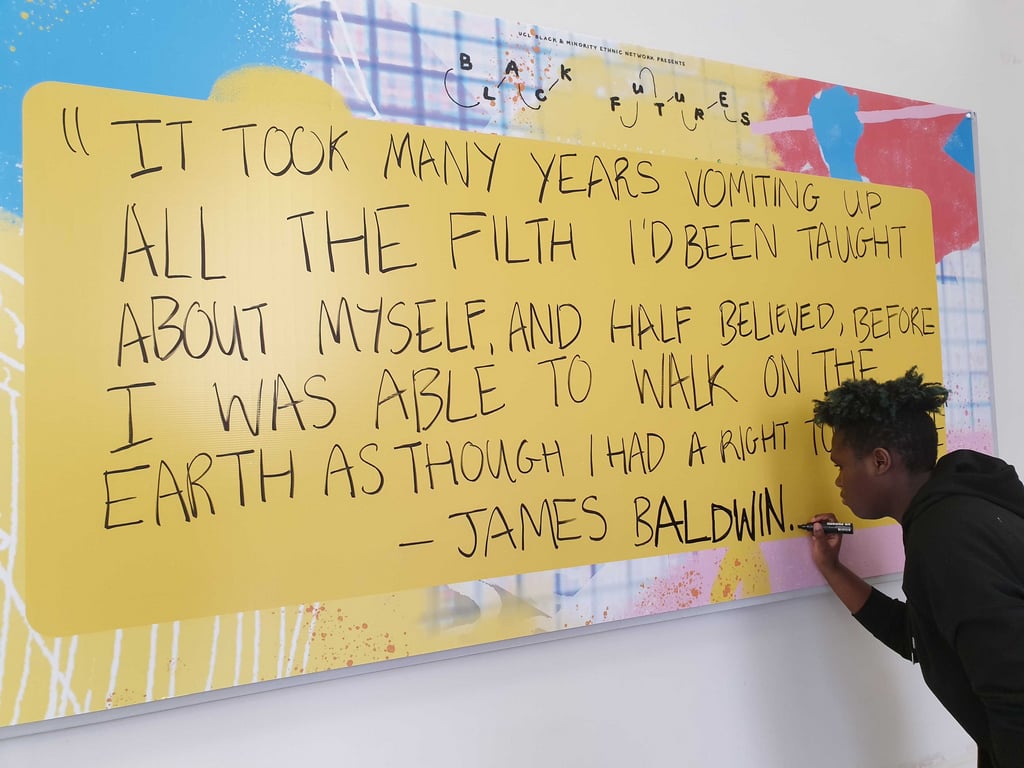 UCL BLACK & MINORITY ETHNIC NETWORK PRESENTS
BLACK FUTURES
" IT TOOK MANY YEARS VOMITING UP
ALL THE FILTH I'D BEEN TAUGHT
ABOUT MYSELF, AND HALF BELIEVED, BEFORE
I WAS ABLE TO WALK ON THE
EARTH AS THOUGH I HAD A RIGHT TO
– JAMES BALDWIN.